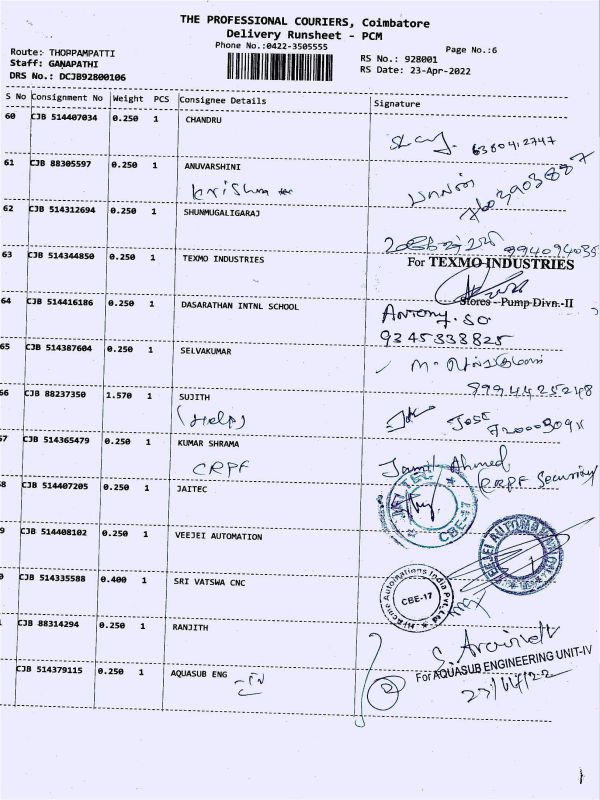 THE PROFESSIONAL COURIERS, Coimbatore
Delivery Runsheet - PCM
Phone No.:0422-3505555
Page No.:6
Route: THOPPAMPATTI
Staff: GANAPATHI
DRS No.: DCJB92800106
RS No.: 928001
RS Date: 23-Apr-2022
S No Consignment No Weight PCS Consignee Details Signature
60 CJB 514407034 0.250 1 CHANDRU
6380412747
61 CJB 88305597 0.250 1 ANUVARSHINI
Krishna
62 CJB 514312694 0.250 1 SHUNMUGALIGARAJ
994094035
63 CJB 514344850 0.250 1 TEXMO INDUSTRIES
For TEXMO INDUSTRIES
Stores - Pump Divn.-II
64 CJB 514416186 0.250 1 DASARATHAN INTNL SCHOOL
Antony. SO
9245338825
65 CJB 514387604 0.250 1 SELVAKUMAR
9994425248
66 CJB 88237350 1.570 1 SUJITH
(Help)
Jose
67 CJB 514365479 0.250 1 KUMAR SHRAMA
CRPF
Jamil Ahmed
CRPF Security
8 CJB 514407205 0.250 1 JAITEC
CBE-17
9 CJB 514408102 0.250 1 VEEJEI AUTOMATION
VEEJEI AUTOMATION
0 CJB 514335588 0.400 1 SRI VATSWA CNC
Automations India Pvt. Ltd
CBE-17
CJB 88314294 0.250 1 RANJITH
S. Aravindh
CJB 514379115 0.250 1 AQUASUB ENG
For AQUASUB ENGINEERING UNIT-IV
23/04/22